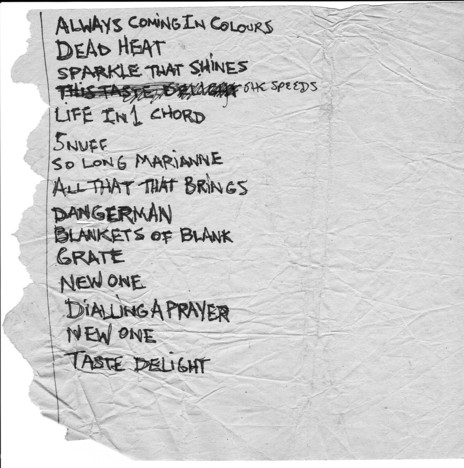 ALWAYS COMING IN COLOURS
DEAD HEAT
SPARKLE THAT SHINES
THIS TASTE SPEEDS
LIFE IN 1 CHORD
SNUFF
SO LONG MARIANNE
ALL THAT THAT BRINGS
DANGERMAN
BLANKETS OF BLANK
GRATE
NEW ONE
DIALLING A PRAYER
NEW ONE
TASTE DELIGHT